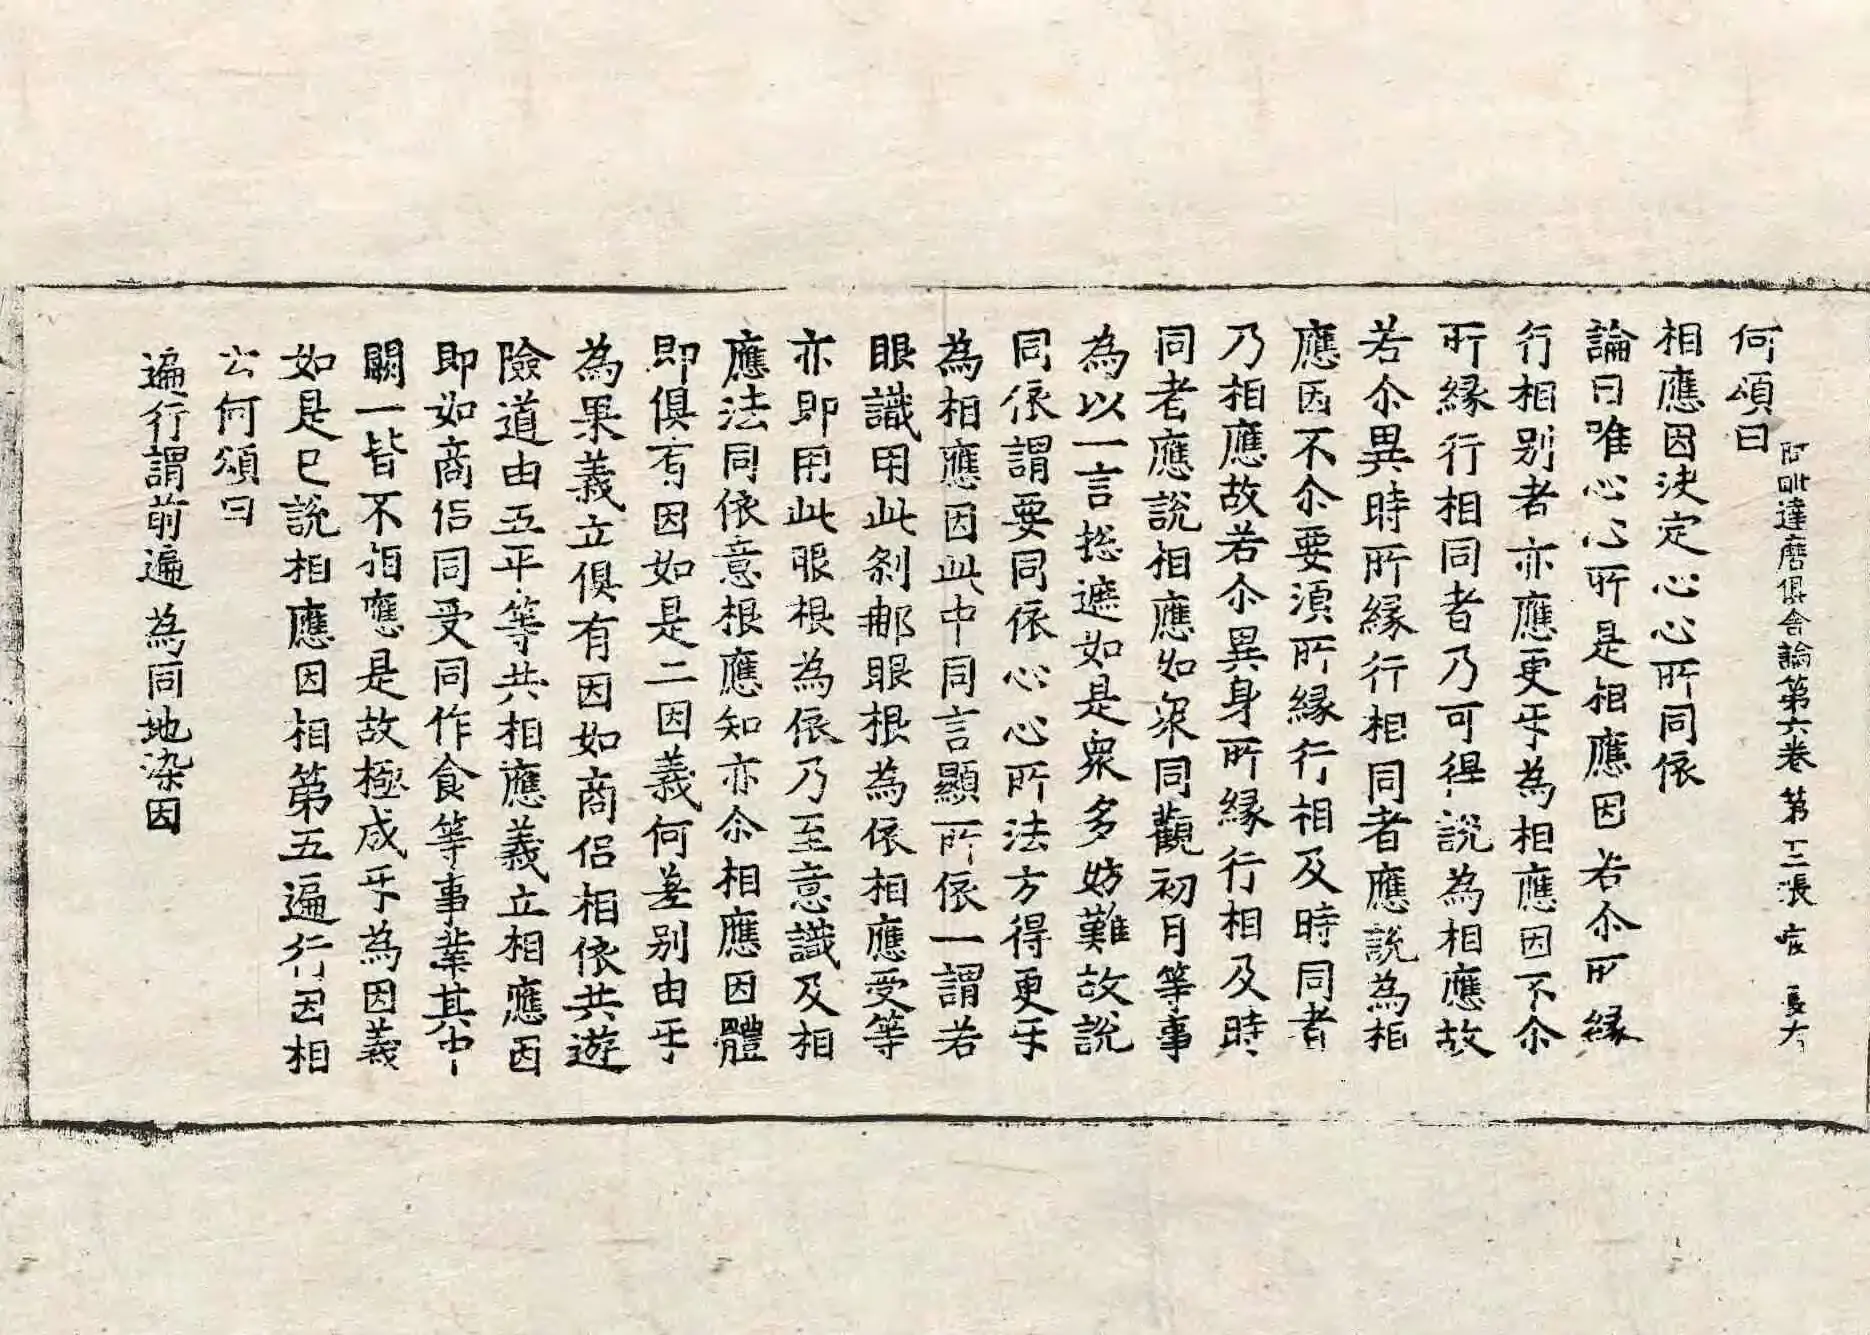 何頌曰
阿毗達磨俱舍論第六卷 第十二張
相應因決定心心所同依
論曰唯心心所是相應因若尒所緣
行相別者亦應更㸦為相應因不尒
所緣行相同者乃可得說為相應故
若尒異時所緣行相同者應說為相
應因不尒要須所緣行相及時同者
乃相應故若尒異身所緣行相及時
同者應說相應如眾同觀初月等事
為以一言揔遮如是眾多妨難故說
同依謂要同依心心所法方得更㸦
為相應因此中同言顯所依一謂若
眼識用此剎那眼根為依相應受等
亦即用此眼根為依乃至意識及相
應法同依意根應知亦尒相應因體
即俱有因如是二因義何差別由㸦
為果義立俱有因如商侶相依共遊
險道由五平等共相應義立相應因
即如商侶同受同作食等事業其中
闕一皆不相應是故極成㸦為因義
如是已說相應因相第五遍行因相
云何頌曰
遍行謂前遍 為同地染因